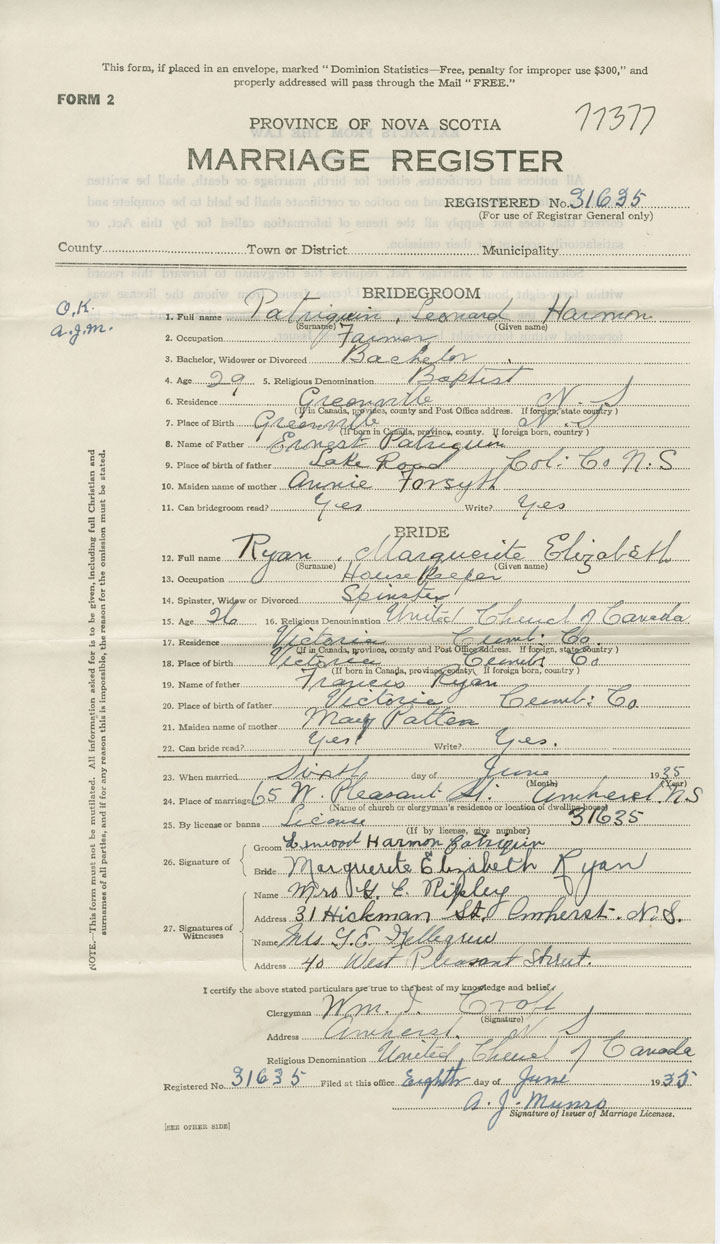 This form, if placed in an envelope, marked "Dominion Statistics—Free, penalty for improper use $300," and
properly addressed will pass through the Mail "FREE."
FORM 2
77377
PROVINCE OF NOVA SCOTIA
MARRIAGE REGISTER
REGISTERED No. 31635
(For use of Registrar General only)
County Town or District Municipality
O.K.
A.J.M.
BRIDEGROOM
1. Full name Patriquin, Leonard Harmon
(Surname) (Given name)
2. Occupation Farmer
3. Bachelor, Widower or Divorced Bachelor
4. Age 29 5. Religious Denomination Baptist
6. Residence Greenville N. S
(If in Canada, province, county and Post Office address. If foreign, state country)
7. Place of Birth Greenville N. S
(If born in Canada, province, county. If foreign born, country)
8. Name of Father Ernest Patriquin
9. Place of birth of father Lake Road Col: Co N.S
10. Maiden name of mother Annie Forsyth
11. Can bridegroom read? Yes Write? Yes
BRIDE
12. Full name Ryan, Marguerite Elizabeth
(Surname) (Given name)
13. Occupation House Keeper
14. Spinster, Widow or Divorced Spinster
15. Age 26 16. Religious Denomination United Church of Canada
17. Residence Victoria Cumb: Co.
(If in Canada, province, county and Post Office address. If foreign, state country)
18. Place of birth Victoria Cumb: Co
(If born in Canada, province, county. If foreign born, country)
19. Name of father Francis Ryan
20. Place of birth of father Victoria Cumb: Co
21. Maiden name of mother Mary Patten
22. Can bride read? Yes Write? Yes.
23. When married Sixth day of June 1935
(Month) (Year)
24. Place of marriage 65 W. Pleasant St. Amherst N S
(Name of church or clergyman's residence or location of dwelling house)
25. By license or banns License 31635
(If by license, give number)
26. Signature of
Groom Harmon Patriquin
Bride Marguerite Elizabeth Ryan
27. Signatures of Witnesses
Name Mrs. E. Ripley
Address 31 Hickman St. Amherst. N.S.
Name Mrs. G.E. Pellegrew
Address 40 West Pleasant Street.
I certify the above stated particulars are true to the best of my knowledge and belief.
Clergyman Wm. I. Croft
(Signature)
Address Amherst. N S
Religious Denomination United Church of Canada
Registered No. 31635 Filed at this office Eighth day of June 1935
A. J. Munro
Signature of Issuer of Marriage Licenses.
[SEE OTHER SIDE]
NOTE.—This form must not be mutilated. All information asked for is to be given, including full Christian and
surnames of all parties, and if for any reason this is impossible, the reason for the omission must be stated.